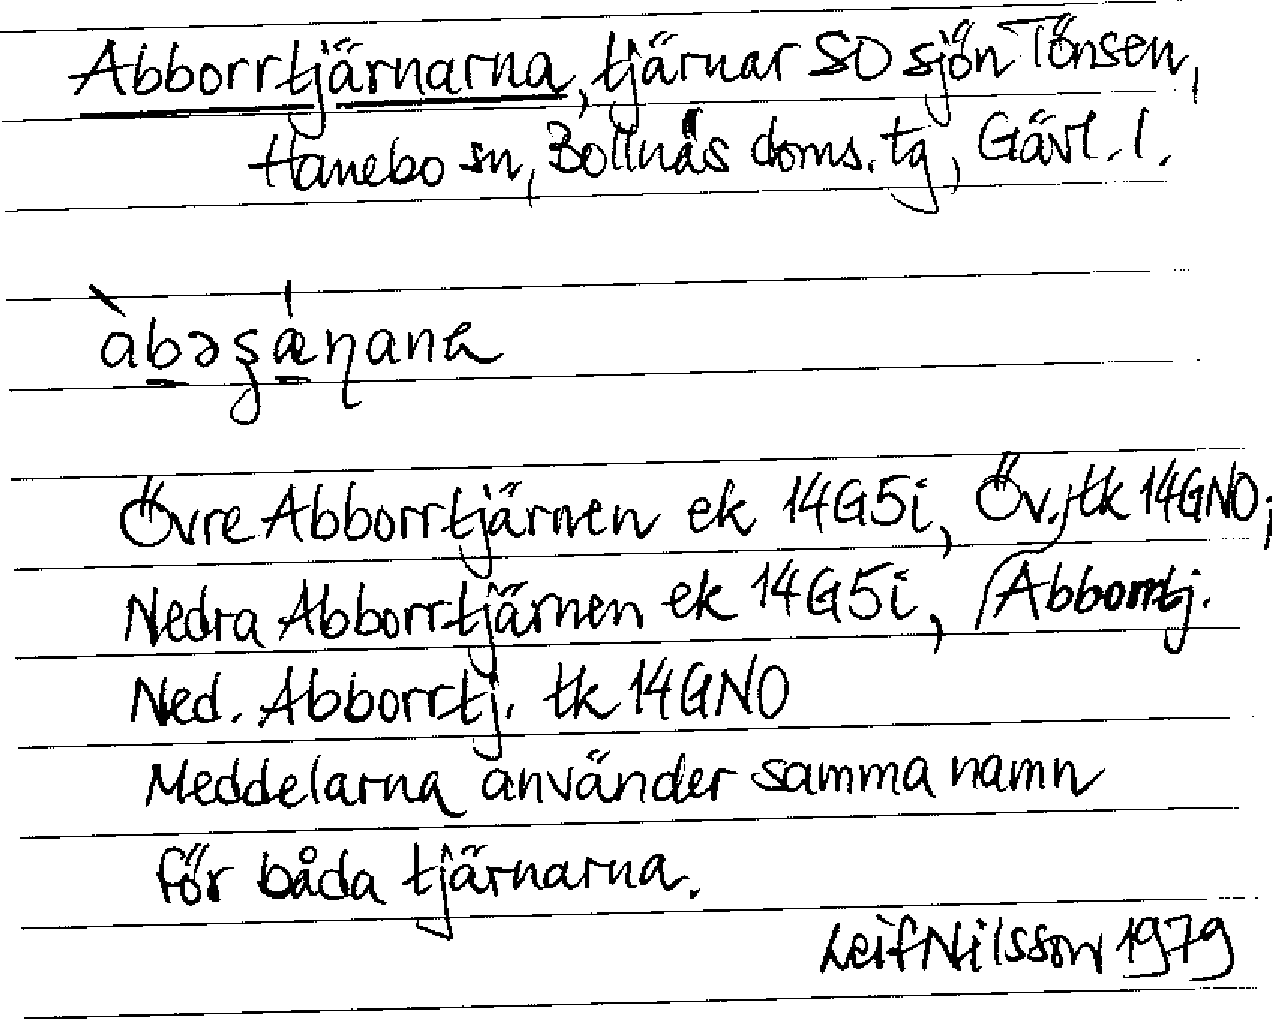 Abborrtjärnarna, tjärnar SO sjön Tönsen,
Hanebo sn, Bollnäs doms. tg, Gävl. l.
àbəʂæ̍ɳana
Övre Abborrtjärnen ek 14G5i, Öv. tk 14GNO;
Nedra Abborrtjärnen ek 14G5i, Abborrtj.
Ned. Abborrtj. tk 14GNO
Meddelarna använder samma namn
för båda tjärnarna.
Leif Nilsson 1979